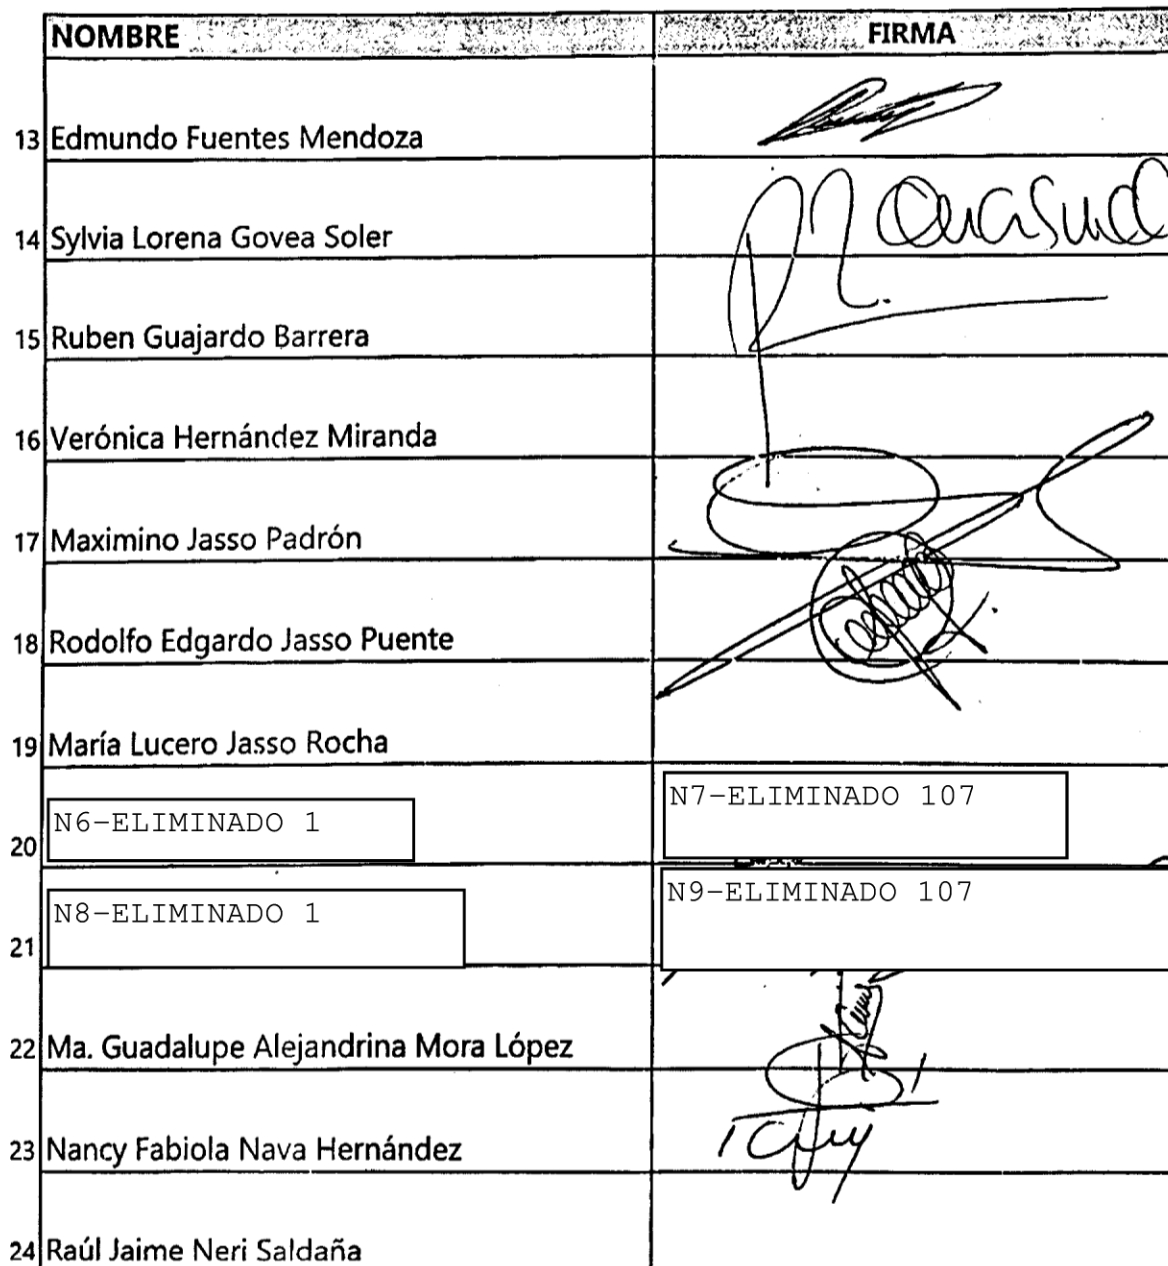 NOMBRE FIRMA
13 Edmundo Fuentes Mendoza
14 Sylvia Lorena Govea Soler
15 Ruben Guajardo Barrera
16 Verónica Hernández Miranda
17 Maximino Jasso Padrón
18 Rodolfo Edgardo Jasso Puente
19 María Lucero Jasso Rocha
20 N6-ELIMINADO 1 N7-ELIMINADO 107
21 N8-ELIMINADO 1 N9-ELIMINADO 107
22 Ma. Guadalupe Alejandrina Mora López
23 Nancy Fabiola Nava Hernández
24 Raúl Jaime Neri Saldaña